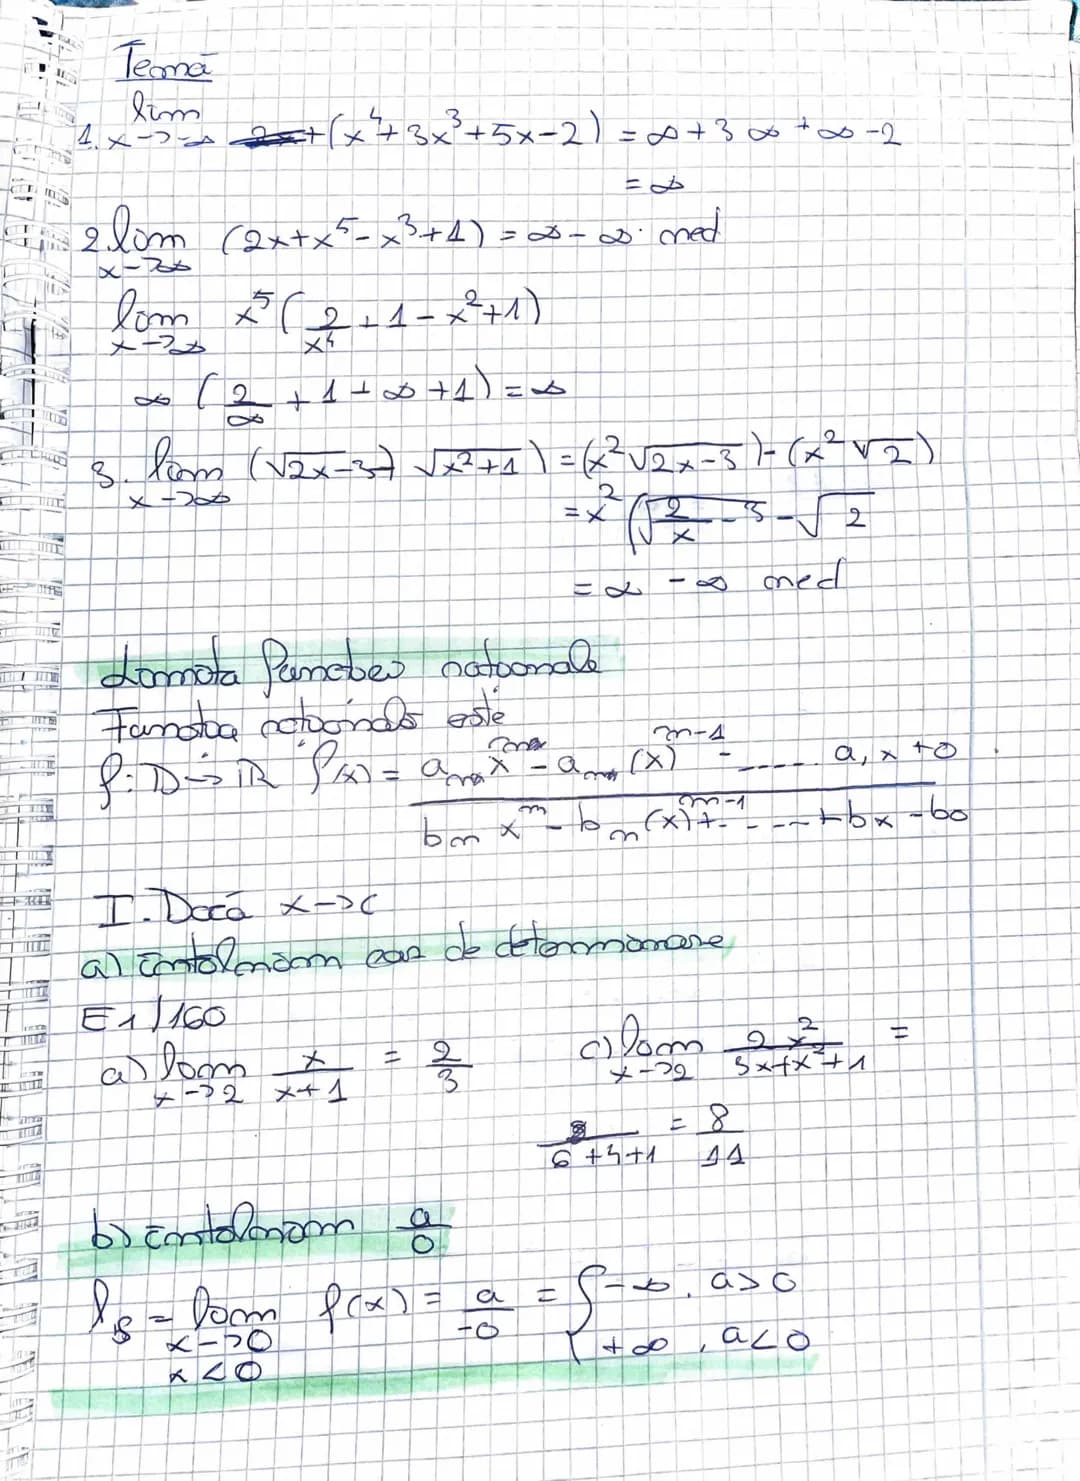 Temă
1. lim x->-∞ (x⁴+3x³+5x-2) = ∞+3∞+∞-2
= ∞
2. lim x->∞ (2x+x⁵-x³+1) = ∞-∞ ned
lim x->∞ x⁵(2/x⁴+1-x²+1)
∞(2/∞+1+∞+1) = ∞
3. lim x->∞ (√2x-3) √x²+1) = (x²√2x-3)-(x²√2)
= x²(√2/x-3-√2
= ∞ -∞ ned
Limita funcției raționale
Funcția rațională este
f: D->ℝ f(x) =
I. Dacă x->c
a) Întâlnim caz de determinare
E1/160
a) lim x->2 x/x+1 = 2/3 c) lim x->2 2x²/3x+x²+1 =
8/6+4+1 = 8/11
b) Întâlnim a/0
ls = lim x->0 x<0 f(x) = a/-0 = { -∞, a>0
+∞, a<0